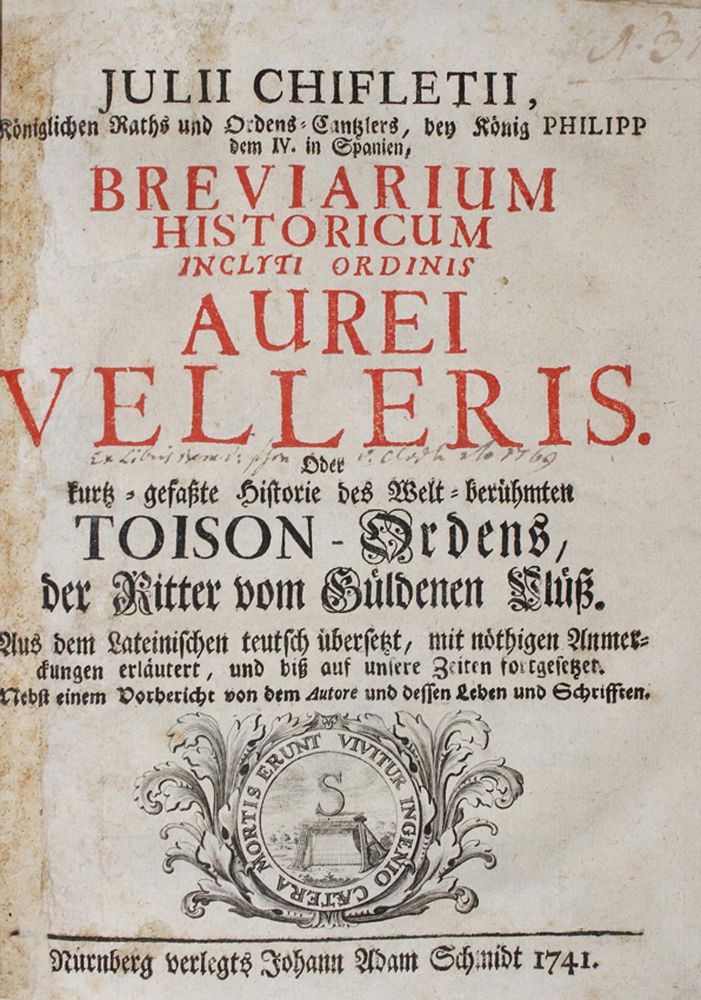 N. 3
JULII CHIFLETII,
Königlichen Raths und Ordens-Cantzlers, bey König PHILIPP
dem IV. in Spanien,
BREVIARIUM
HISTORICUM
INCLYTI ORDINIS
AUREI
VELLERIS.
Ex Libris 1769
Oder
kurtz-gefaßte Historie des Welt-berühmten
TOISON-Ordens,
der Ritter vom Güldenen Vlüß.
Aus dem Lateinischen teutsch übersetzt, mit nöthigen Anmer-
ckungen erläutert, und biß auf unsere Zeiten fortgesetzet.
Nebst einem Vorbericht von dem Autore und dessen Leben und Schrifften.
VIVITUR INGENIO CÆTERA MORTIS ERUNT
S
Nürnberg verlegts Johann Adam Schmidt 1741.